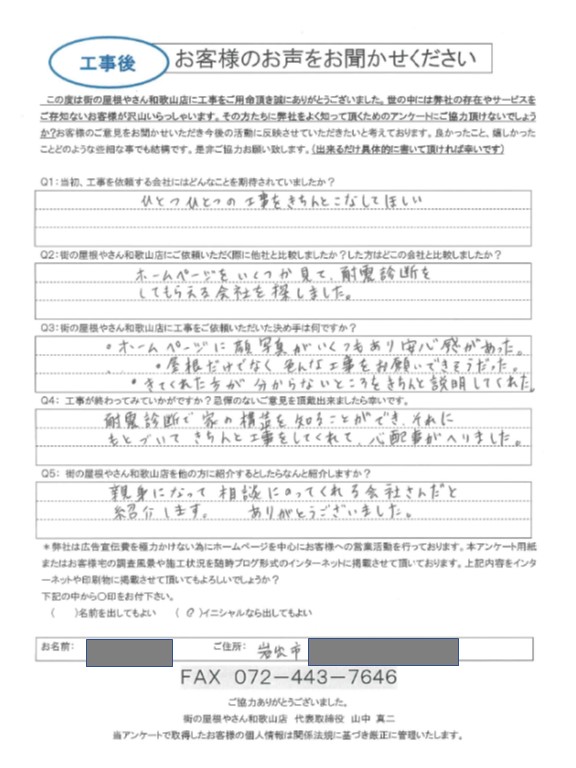 工事後
お客様のお声をお聞かせください
この度は街の屋根やさん和歌山店に工事をご用命頂き誠にありがとうございました。世の中には弊社の存在やサービスを
ご存知ないお客様が沢山いらっしゃいます。その方たちに弊社をよく知って頂くためのアンケートにご協力頂けないでしょう
か?お客様のご意見をお聞かせいただき今後の活動に反映させていただきたいと考えております。良かったこと、嬉しかった
ことどのような些細な事でも結構です。是非ご協力お願い致します。(出来るだけ具体的に書いて頂ければ幸いです)
Q1:当初、工事を依頼する会社にはどんなことを期待されていましたか?
ひとつひとつの工事をきちんとこなしてほしい
Q2:街の屋根やさん和歌山店にご依頼いただく際に他社と比較しましたか?した方はどこの会社と比較しましたか?
ホームページをいくつか見て、耐震診断を
してもらえる会社を探しました。
Q3:街の屋根やさん和歌山店に工事をご依頼いただいた決め手は何ですか?
・ホームページに顔写真がいくつもあり安心感があった。
・屋根だけでなく色んな工事をお願いできそうだった。
・きてくれた方が分からないところをきちんと説明してくれた。
Q4:工事が終わってみていかがですか?忌憚のないご意見を頂戴出来ましたら幸いです。
耐震診断で家の構造を知ることができ、それに
もとづいてきちんと工事をしてくれて、心配事がへりました。
Q5:街の屋根やさん和歌山店を他の方に紹介するとしたらなんと紹介しますか?
親身になって相談にのってくれる会社さんだと
紹介します。 ありがとうございました。
*弊社は広告宣伝費を極力かけない為にホームページを中心にお客様への営業活動を行っております。本アンケート用紙
またはお客様宅の調査風景や施工状況を随時ブログ形式のインターネットに掲載させて頂いております。上記内容をインタ
ーネットや印刷物に掲載させて頂いてもよろしいでしょうか?
下記の中から〇印をお付下さい。
( )名前を出してもよい (〇)イニシャルなら出してもよい
お名前: ご住所: 岩出市
FAX 072-443-7646
ご協力ありがとうございました。
街の屋根やさん和歌山店 代表取締役 山中 真二
当アンケートで取得したお客様の個人情報は関係法規に基づき厳正に管理いたします。